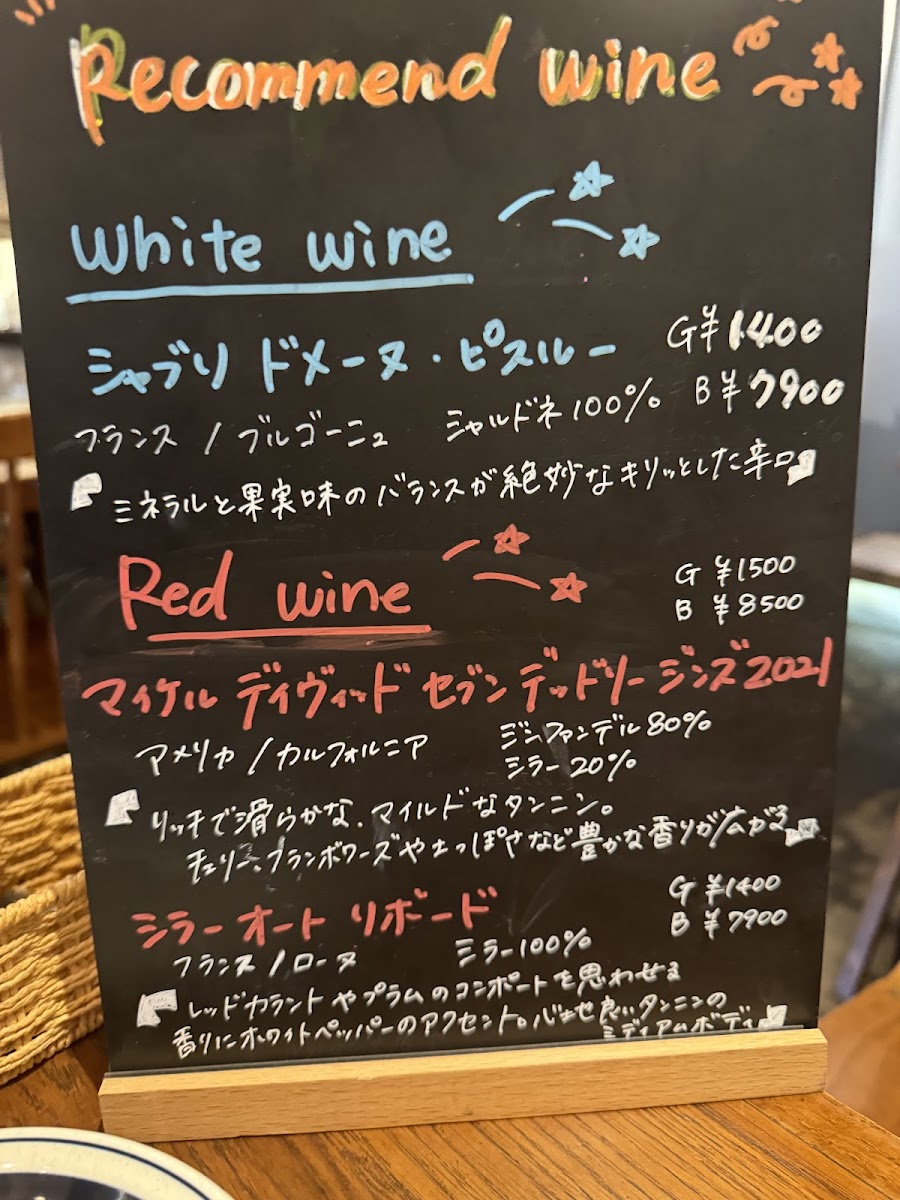 Recommend wine
White wine
シャブリ ドメーヌ・ピスルー
G¥1400
フランス / ブルゴーニュ シャルドネ100% B¥7900
ミネラルと果実味のバランスが絶妙なキリッとした辛口
Red wine
G ¥1500
B ¥8500
マイケル デイヴィッド セブン デッドリー ジンズ2021
アメリカ / カルフォルニア ジンファンデル80%
シラー20%
リッチで滑らかな、マイルドなタンニン。
チェリー、フランボワーズや土っぽさなど豊かな香りが広がる
シラー オート リボード
G ¥1400
B ¥7900
フランス / ローヌ シラー100%
レッドカラントやプラムのコンポートを思わせる
香りにホワイトペッパーのアクセント。心地良いタンニンの
ミディアムボディ